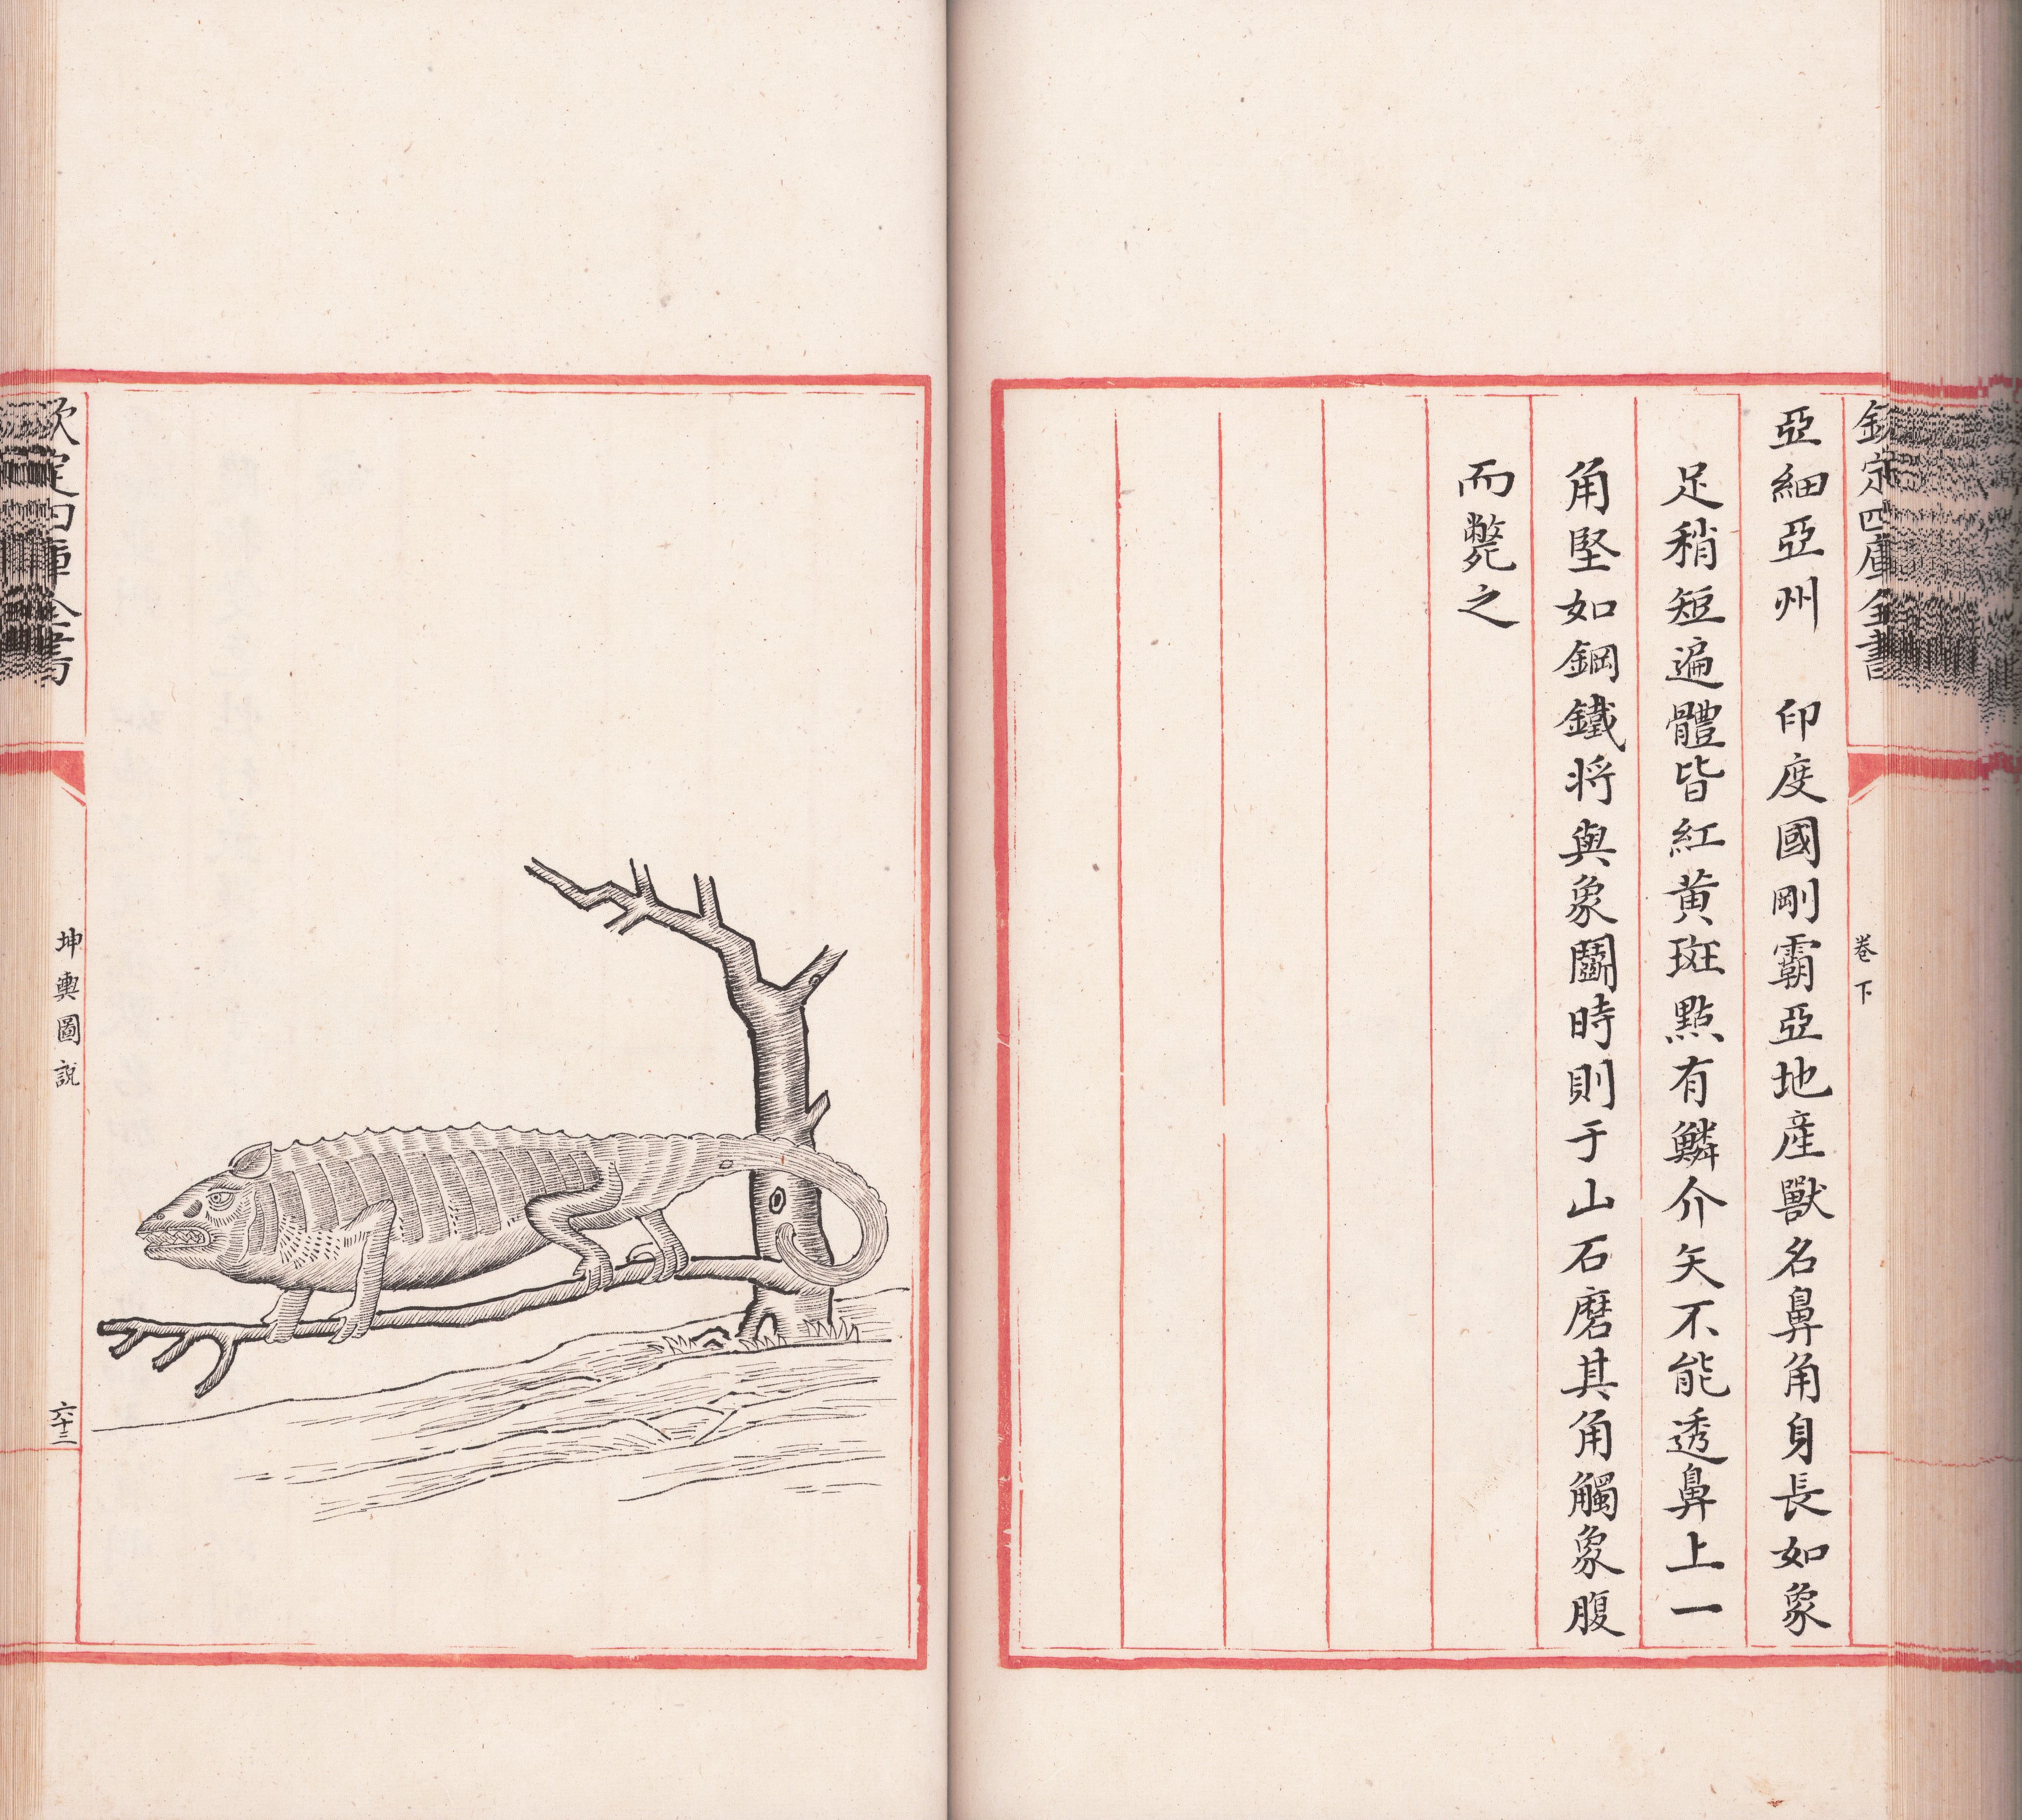 欽定四庫全書
卷下
亞細亞州　印度國剛霸亞地產獸名鼻角身長如象
足稍短遍體皆紅黄斑點有鱗介矢不能透鼻上一
角堅如鋼鐵将與象鬭時則于山石磨其角觸象腹
而斃之
欽定四庫全書
坤輿圖說
六十三